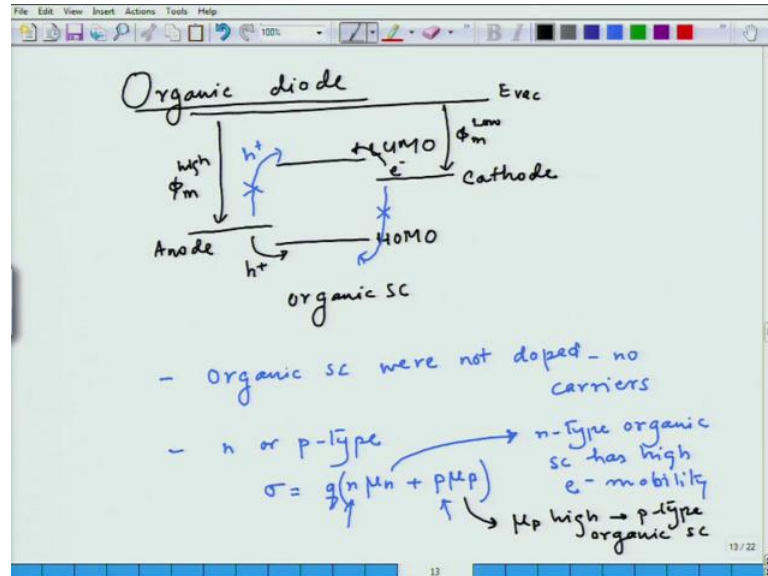 File Edit View Insert Actions Tools Help
100%
B I
Organic diode
Evac
high
ϕm
h+
LUMO
e-
Low
ϕm
Cathode
Anode
h+
HOMO
organic sc
- organic sc were not doped - no
carriers
- n or p-type
σ = q(n μn + pμp)
n-type organic
sc has high
e- mobility
μp high → p-type
organic sc
13 / 22
13